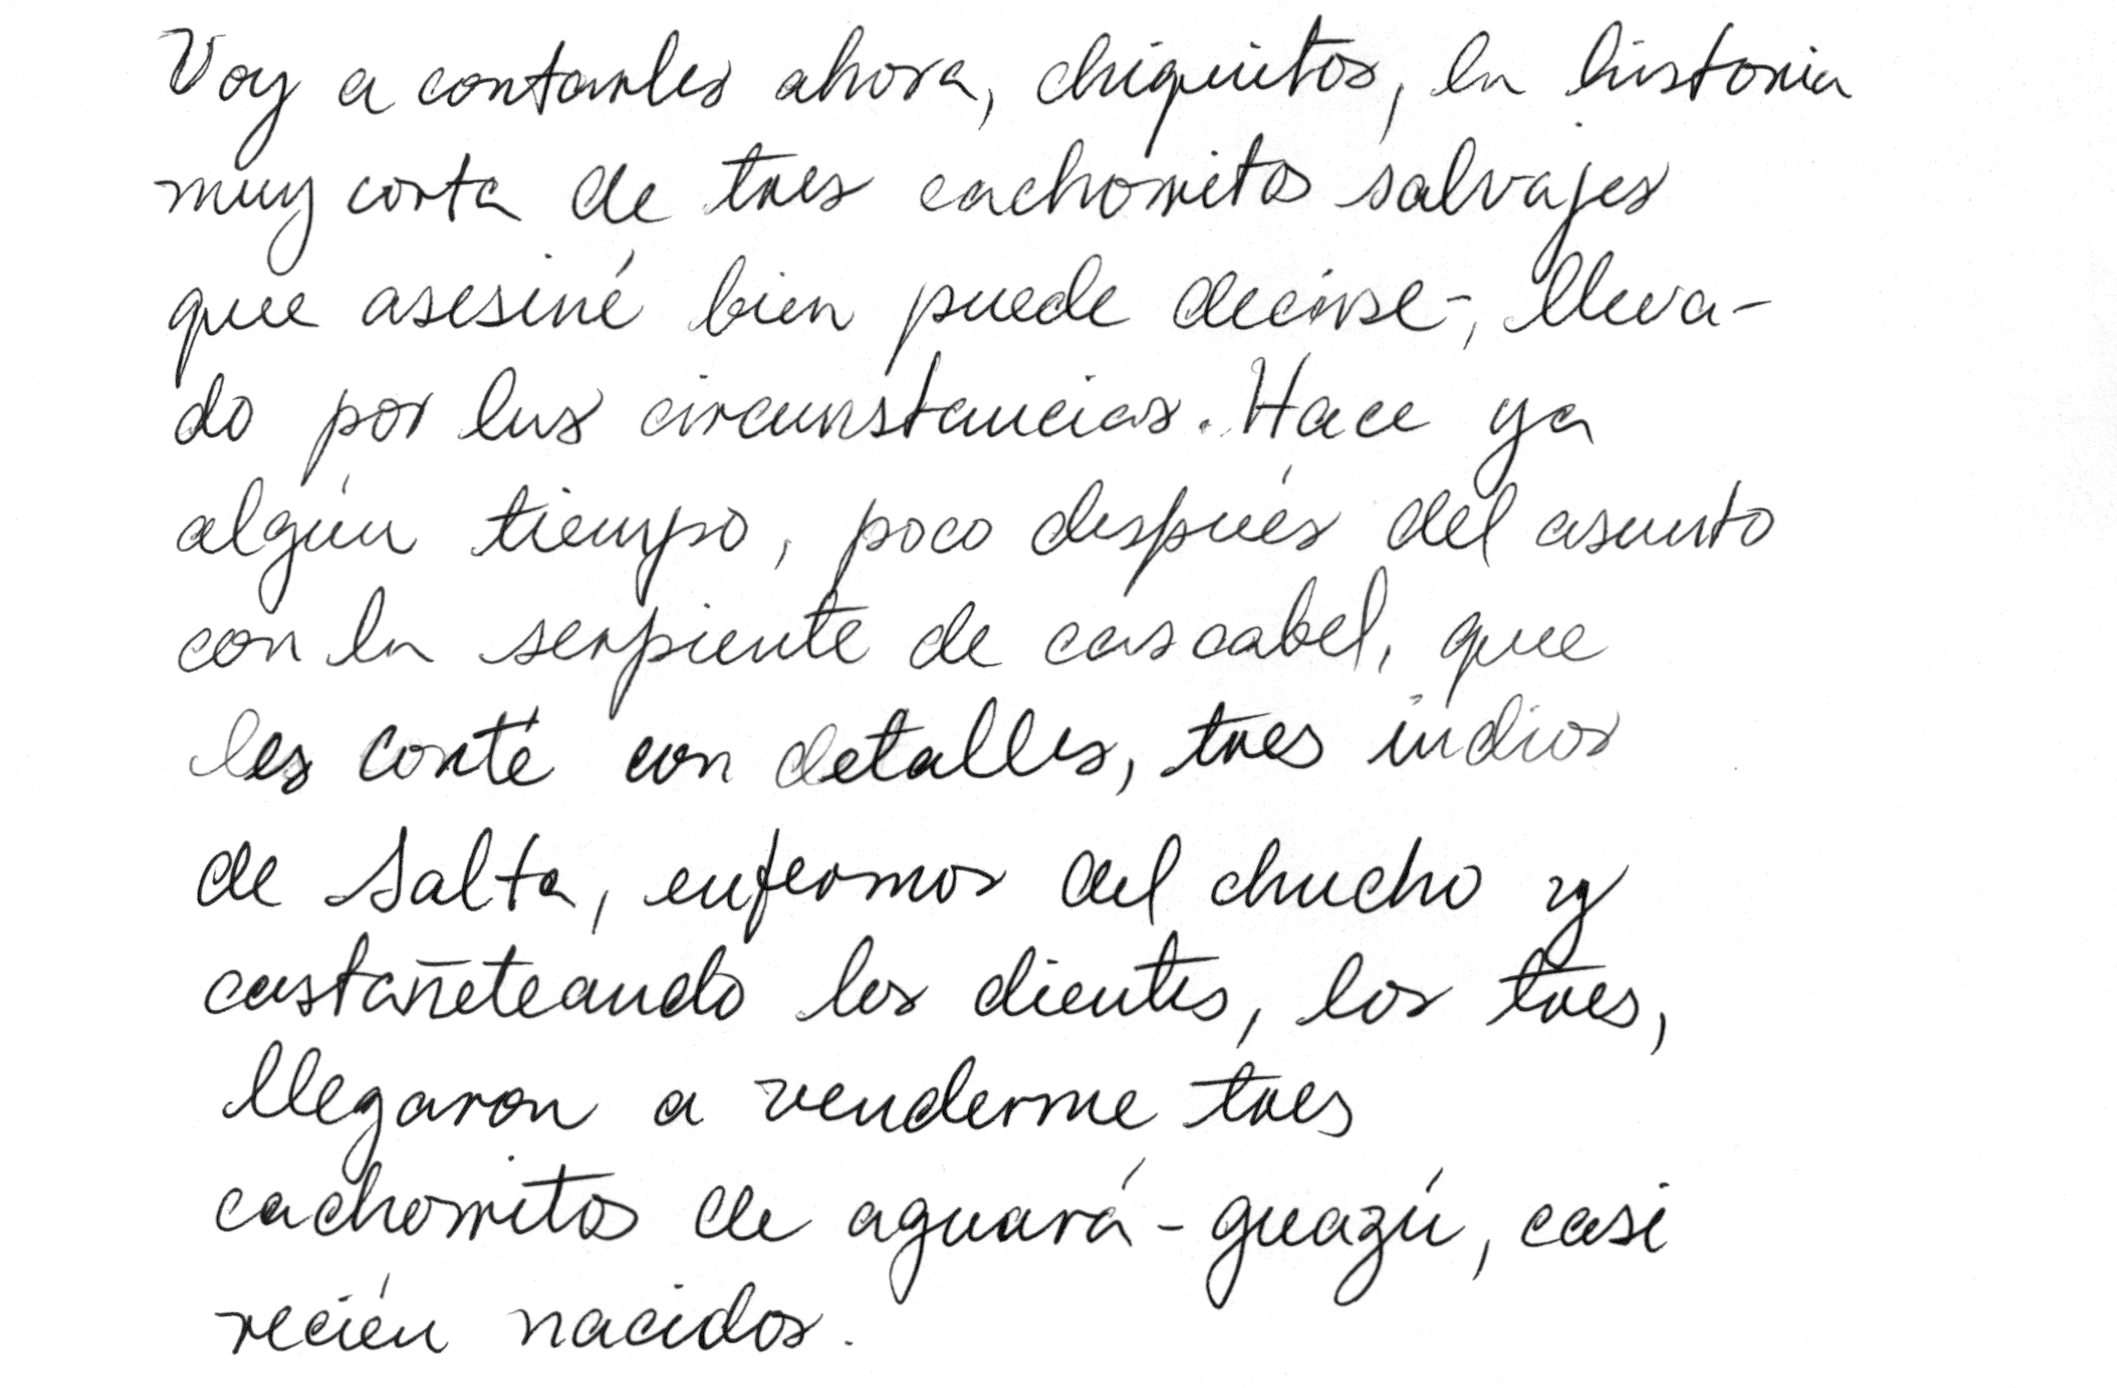 Voy a contarles ahora, chiquitos, la historia
muy corta de tres cachorritos salvajes
que asesiné bien puede decirse-, lleva-
do por las circunstancias. Hace ya
algún tiempo, poco después del asunto
con la serpiente de cascabel, que
les conté con detalles, tres indios
de Salta, enfermos del chucho y
castañeteando los dientes, los tres,
llegaron a venderme tres
cachorritos de aguará-guazú, casi
recién nacidos.